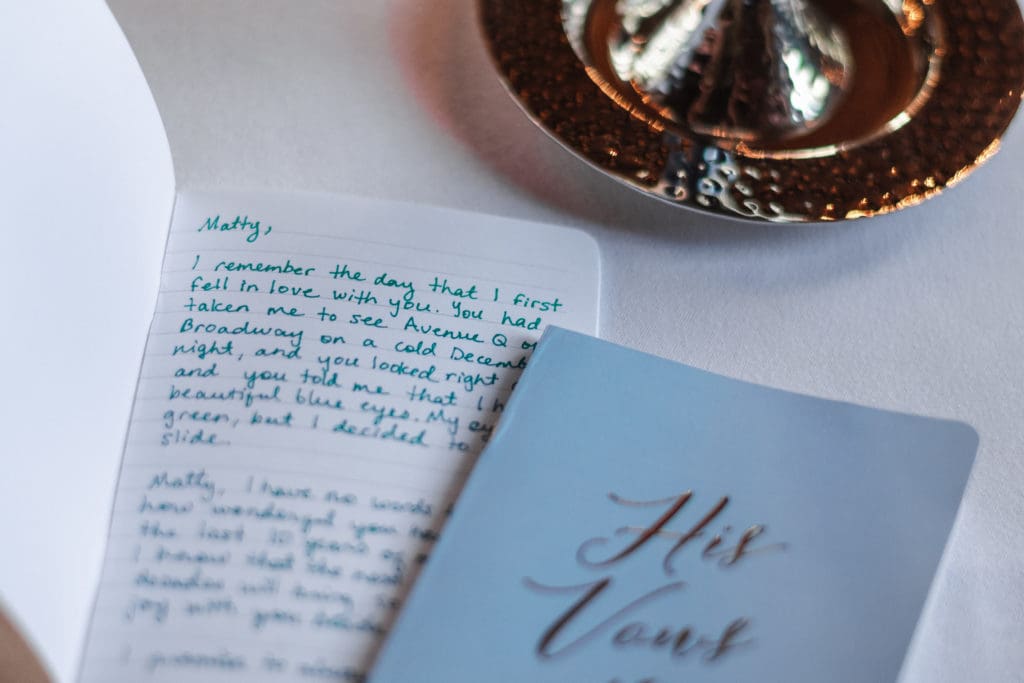 Matty,
I remember the day that I first
fell in love with you. You had
taken me to see Avenue Q
Broadway on a cold
night, and you looked right
and you told me that I
beautiful blue eyes. My
green, but I decided to
slide.
Matty, I have no words
how wonderful you
the last 10 years of
I know that the next
decades will bring
joy with you
I promise to
His
Vows